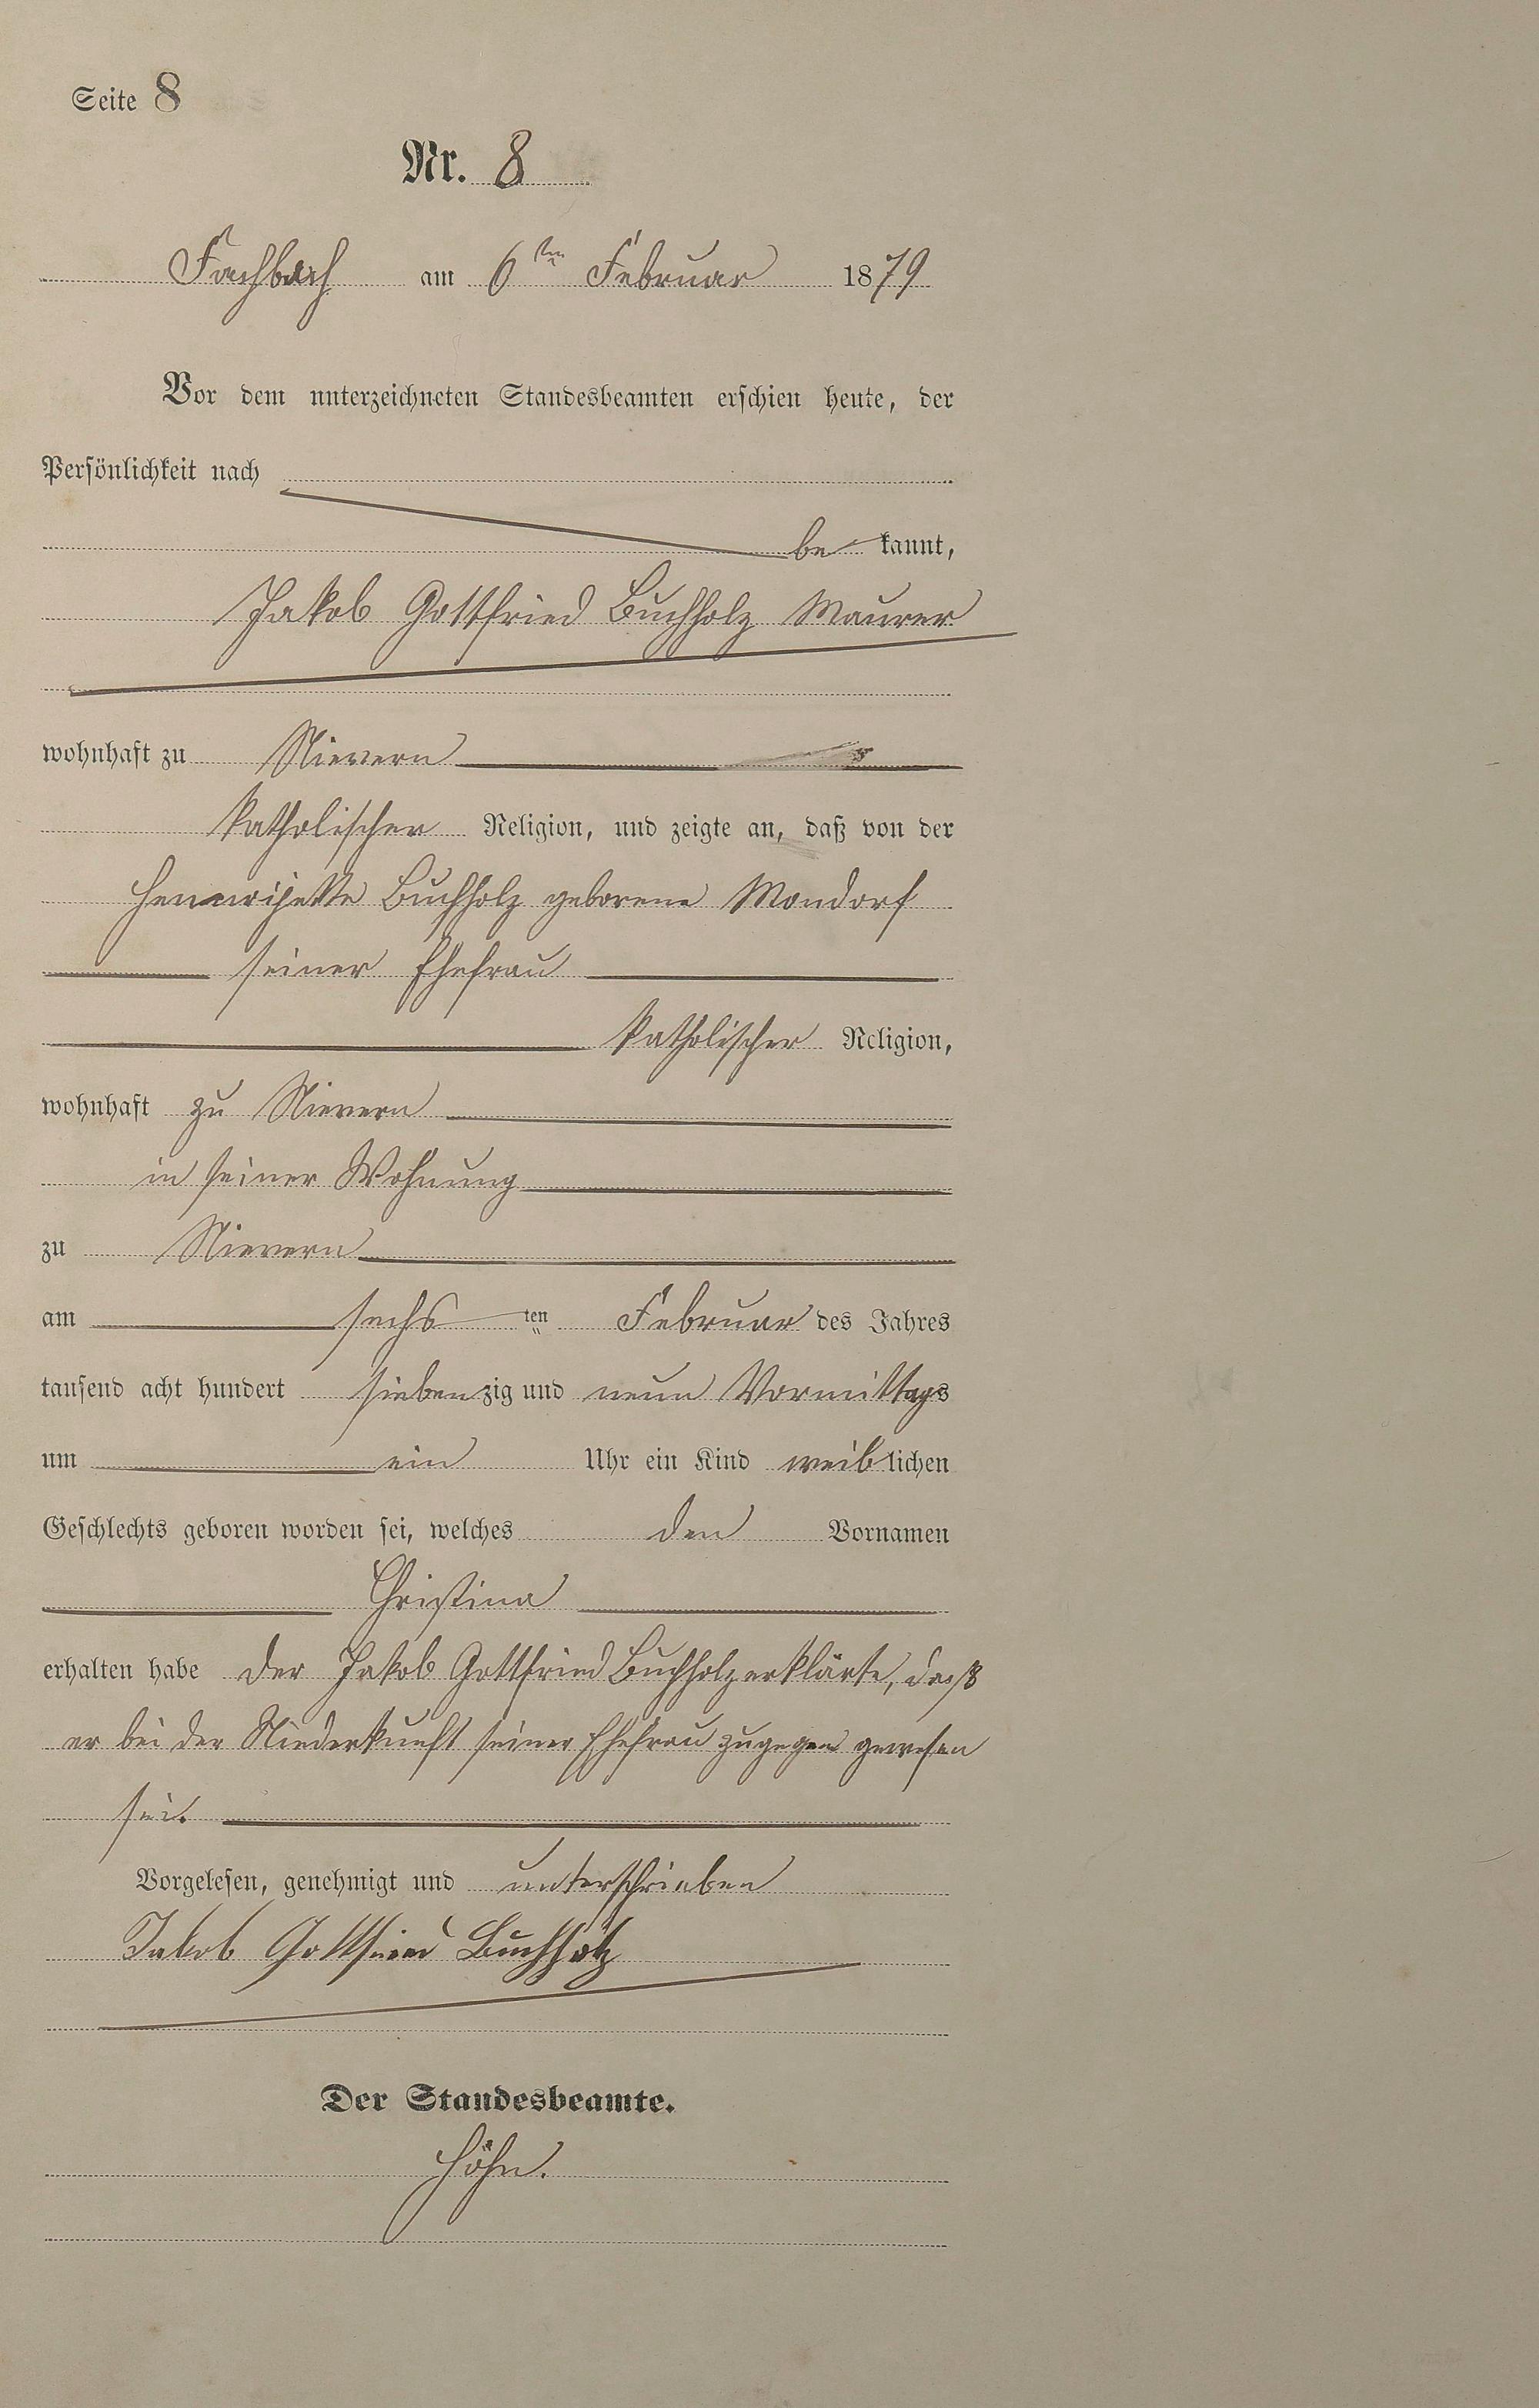 Seite 8
Nr. 8
Fachbach am 6ten Februar 1879
Vor dem unterzeichneten Standesbeamten erschien heute, der
Persönlichkeit nach
be kannt,
Jakob Gottfried Buchholz Maurer
wohnhaft zu Nievern
katholischer Religion, und zeigte an, daß von der
Hennrijette Buchholz geborene Mondorf
seiner Ehefrau
katholischer Religion,
wohnhaft zu Nievern
in seiner Wohnung
zu Nievern
am sechs ten Februar des Jahres
tausend acht hundert sieben zig und neun Vormittags
um ein Uhr ein Kind weib lichen
Geschlechts geboren worden sei, welches den Vornamen
Christina
erhalten habe der Jakob Gottfried Buchholz erklärte, daß
er bei der Niederkunft seiner Ehefrau zugegen gewesen
sei.
Vorgelesen, genehmigt und unterschrieben
Jakob Gottfried Buchholz
Der Standesbeamte.
Höhn.